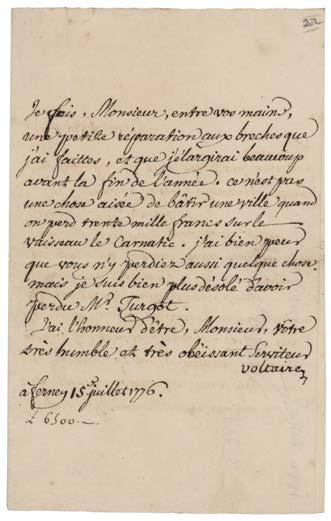 22
Je fais, Monsieur, entre vos mains,
une petite réparation aux breches que
j'ai faittes, et que j'élargirai beaucoup
avant la fin de l'année. ce n'est pas
une chose aisée de bâtir une ville quand
on perd trente mille francs sur le
vaisseau le Carnatic. j'ai bien peur
que vous n'y perdiez aussi quelque chose.
mais je suis bien plus désolé d'avoir
perdu Mr. Turgot.
J'ai l'honneur d'être, Monsieur, Votre
très humble et très obéissant Serviteur
Voltaire
à Ferney 15e juillet 1776.
£ 6500.—